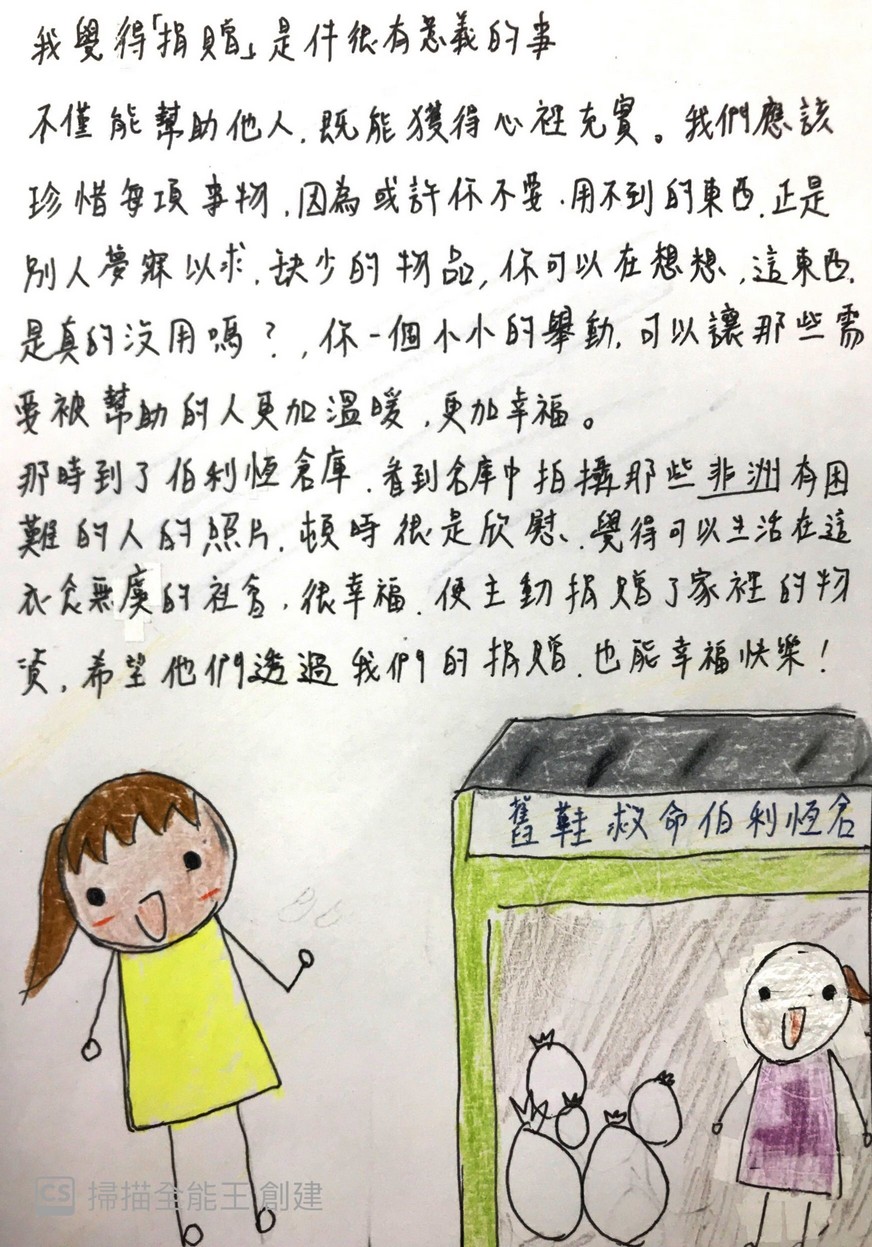 我覺得「捐贈」是件很有意義的事
不僅能幫助他人，既能獲得心裡充實。我們應該
珍惜每項事物，因為或許你不要，用不到的東西，正是
別人夢寐以求，缺少的物品，你可以在想想，這東西，
是真的沒用嗎？，你一個小小的舉動，可以讓那些需
要被幫助的人更加溫暖，更加幸福。
那時到了伯利恆倉庫，看到倉庫中拍攝那些非洲有困
難的人的照片，頓時很是欣慰、覺得可以生活在這
衣食無虞的社會，很幸福，便主動捐贈了家裡的物
資，希望他們透過我們的捐贈，也能幸福快樂！
舊鞋救命伯利恆倉
CS 掃描全能王 創建